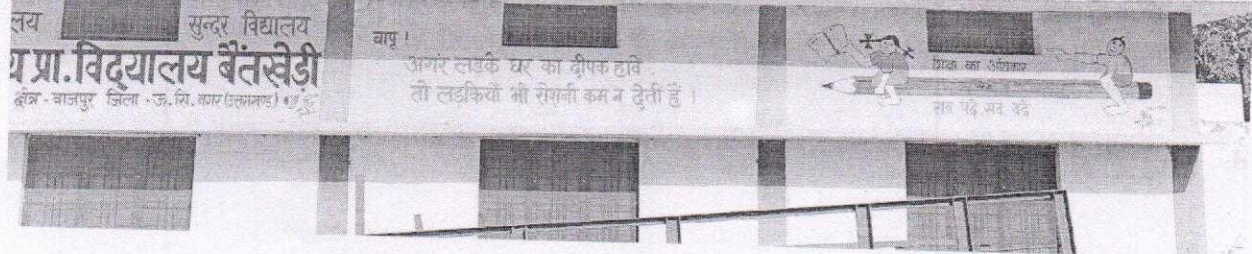 लय
सुन्दर विद्यालय
य प्रा.विद्यालय बैंतखेडी
क्षेत्र - बाजपुर जिला - ऊ.सि.नगर (उत्तराखण्ड)
बापू !
अगर लडके घर का दीपक हावे
तो लडकियाँ भी रोशनी कम न देती है ।
शिक्षा का अधिकार
सब पढें सब बढें